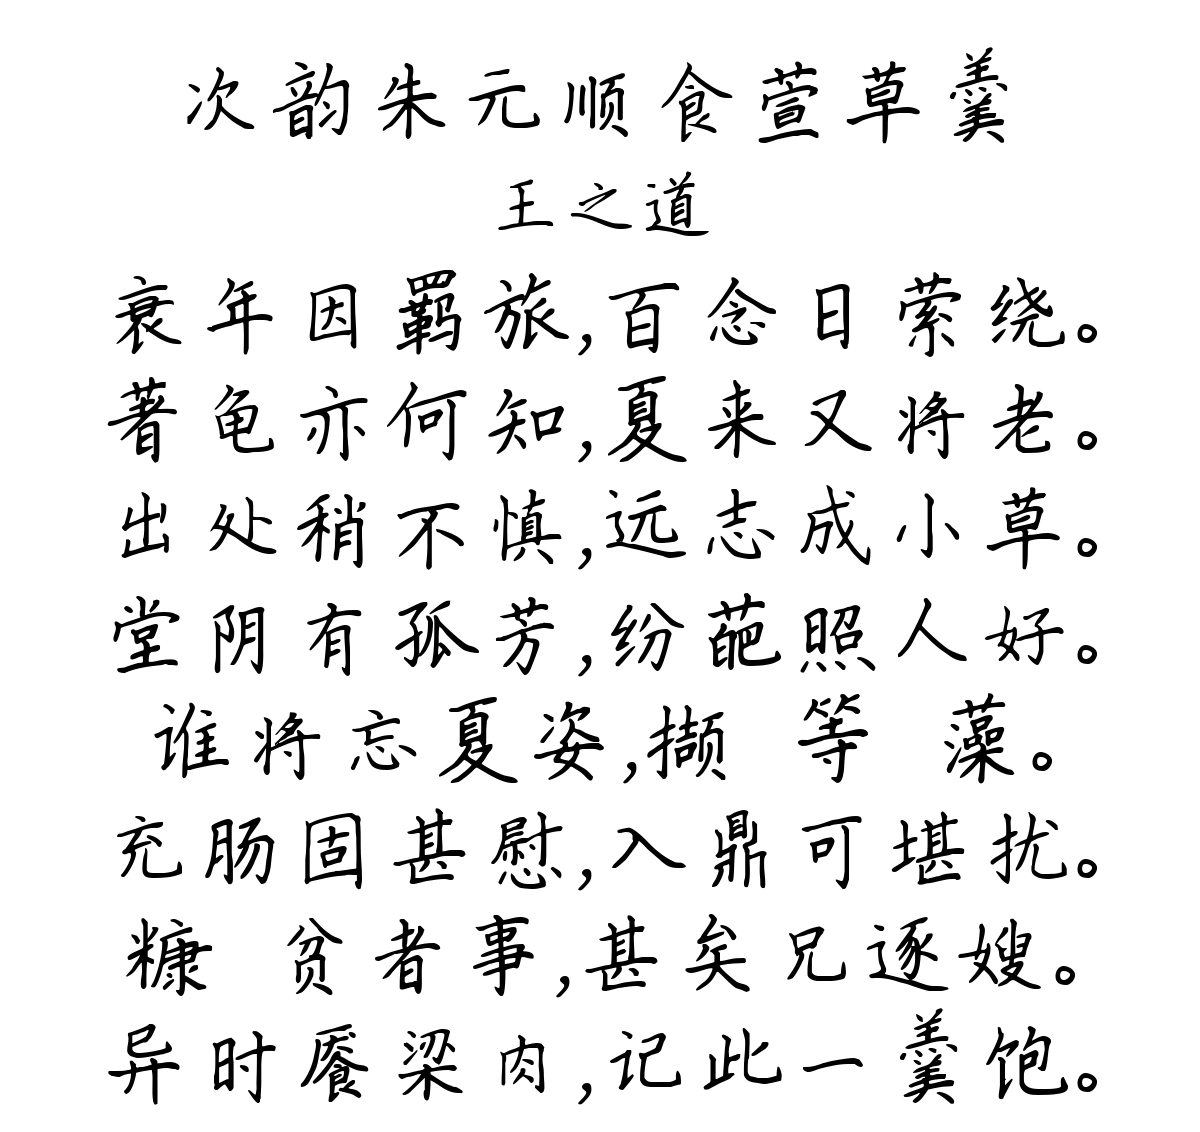 次韵朱元顺食萱草羹
王之道
衰年因羁旅,百念日萦绕。
蓍龟亦何知,夏来又将老。
出处稍不慎,远志成小草。
堂阴有孤芳,纷葩照人好。
谁将忘夏姿,撷 等 藻。
充肠固甚慰,入鼎可堪扰。
糠 贫者事,甚矣兄逐嫂。
异时餍梁肉,记此一羹饱。